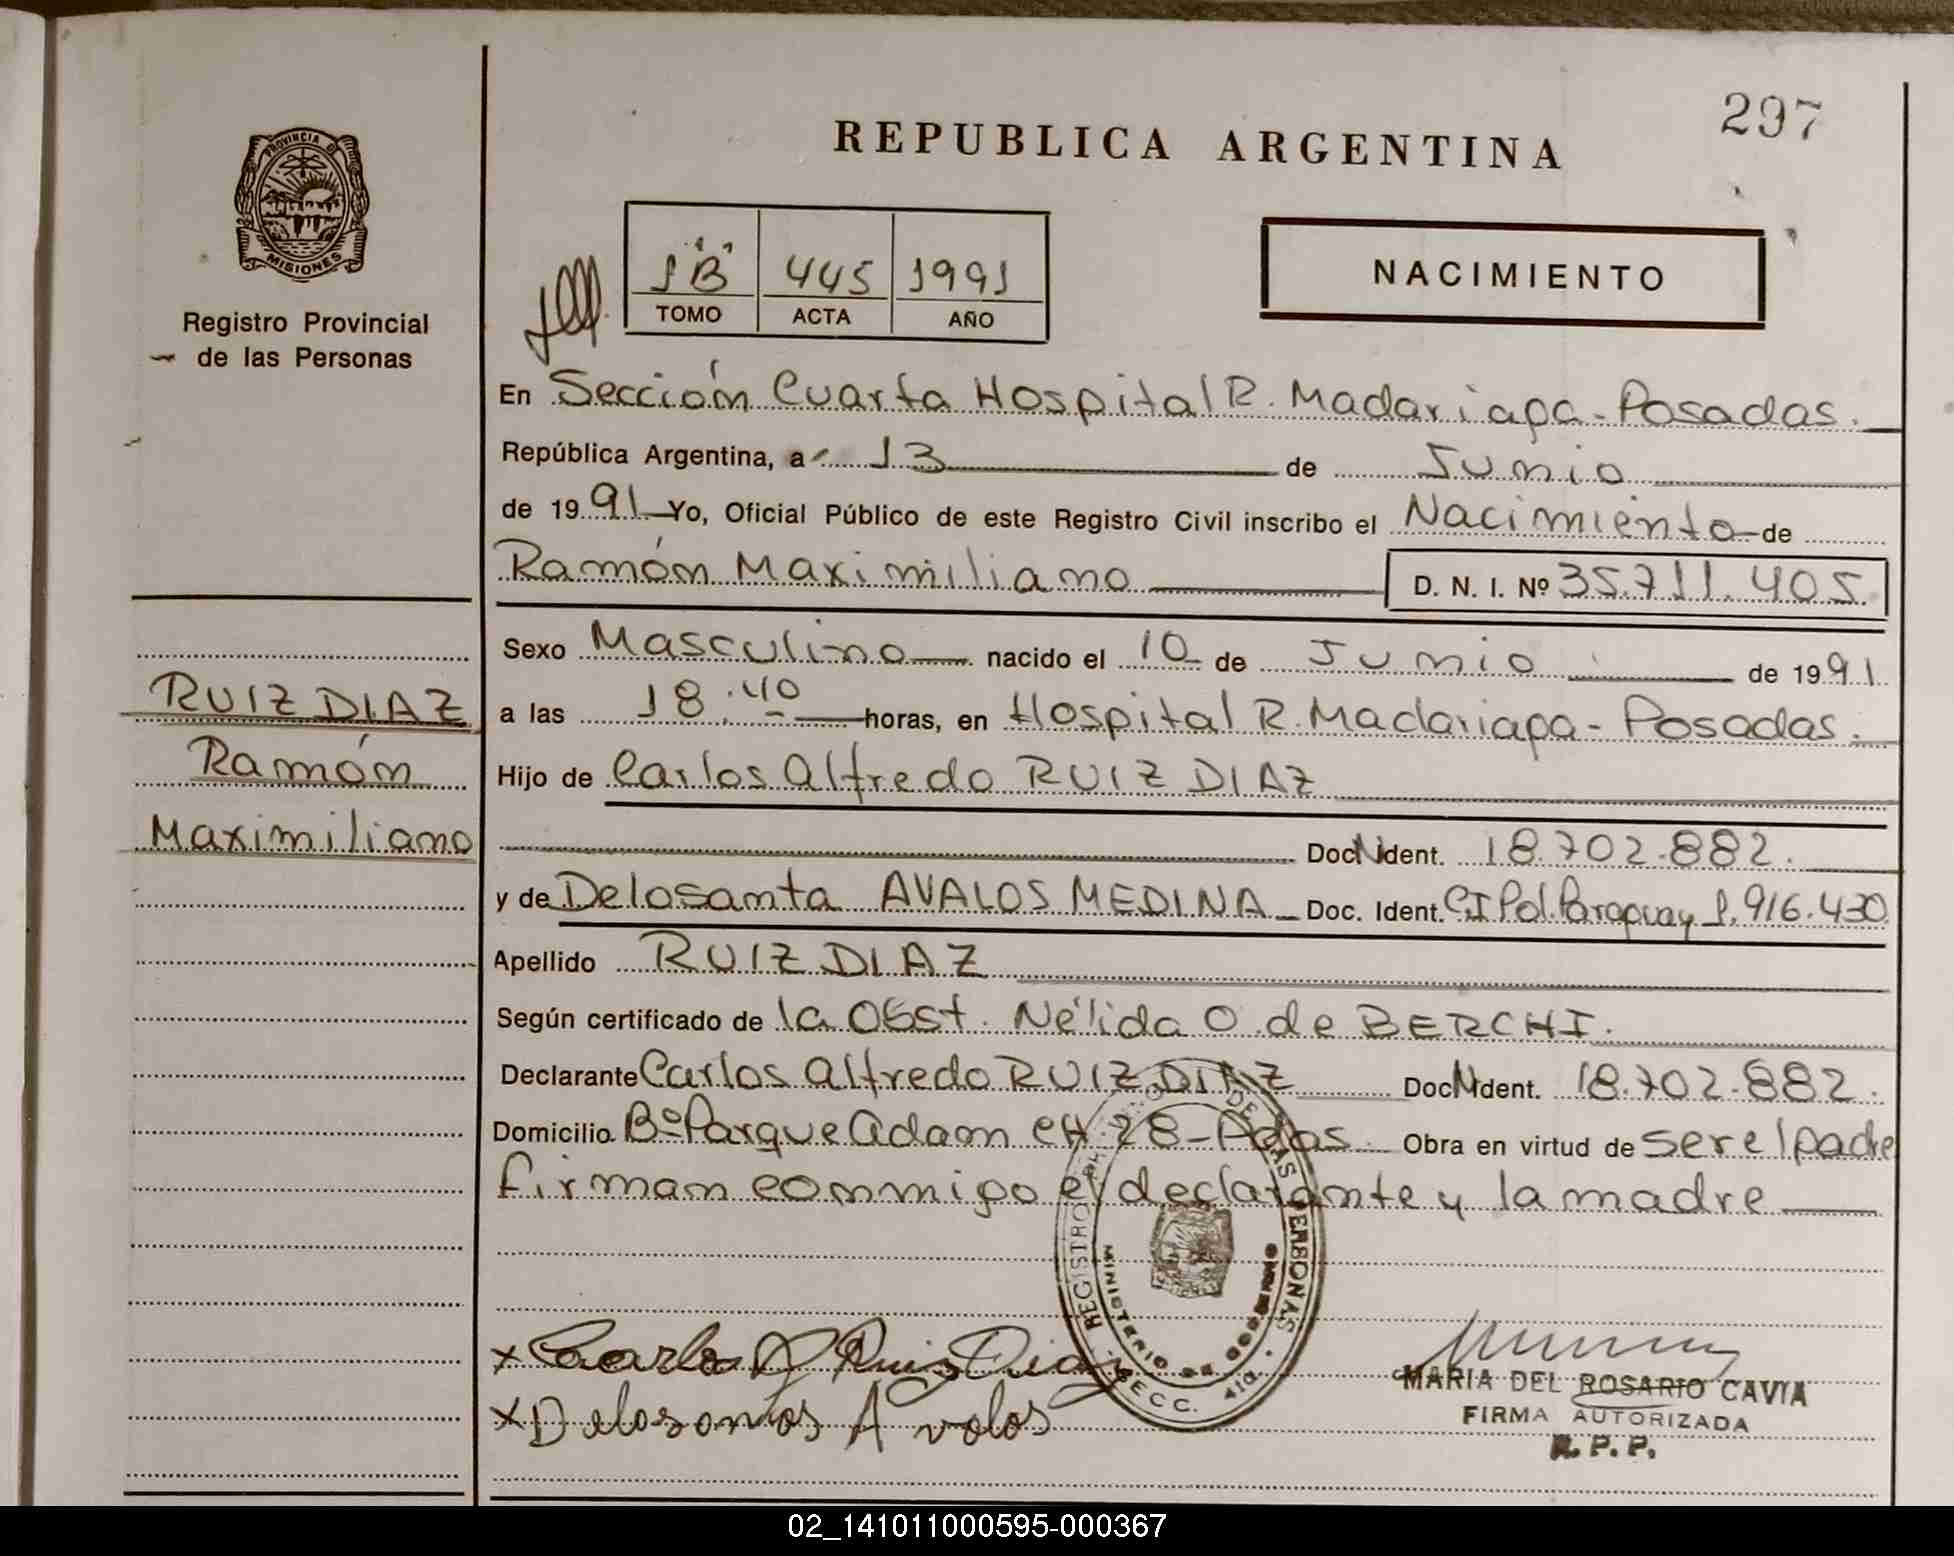 297
REPUBLICA ARGENTINA
PROVINCIA D
MISIONES
Registro Provincial
de las Personas
"1B" 445 1991
TOMO ACTA AÑO
NACIMIENTO
En Sección Cuarta Hospital R. Madariaga - Posadas.
República Argentina, a 13 de Junio
de 1991 Yo, Oficial Público de este Registro Civil inscribo el Nacimiento de
Ramón Maximiliano D. N. I. Nº 35.711.405.
Sexo Masculino nacido el 10 de Junio de 1991
a las 18.40 horas, en Hospital R. Madariaga - Posadas.
Hijo de Carlos Alfredo RUIZ DIAZ
Doc. Ident. 18.702.882.
y de Delosanta AVALOS MEDINA Doc. Ident. CI Pol. Paraguay 1.916.430
Apellido RUIZ DIAZ
Según certificado de la Obst. Nélida O. de BERCHI.
Declarante Carlos Alfredo RUIZ DIAZ Doc. Ident. 18.702.882.
Domicilio Bº Parque Adam CH. 28 - Pdas. Obra en virtud de ser el padre
firman conmigo el declarante y la madre
RUIZ DIAZ
Ramón
Maximiliano
REGISTRO DE LAS PERSONAS
MINISTERIO DE GOBIERNO
SECC. 4ta.
x Carlos A Ruiz Diaz
x Delosantos Avalos
MARIA DEL ROSARIO CAVIA
FIRMA AUTORIZADA
R. P. P.
02_141011000595-000367